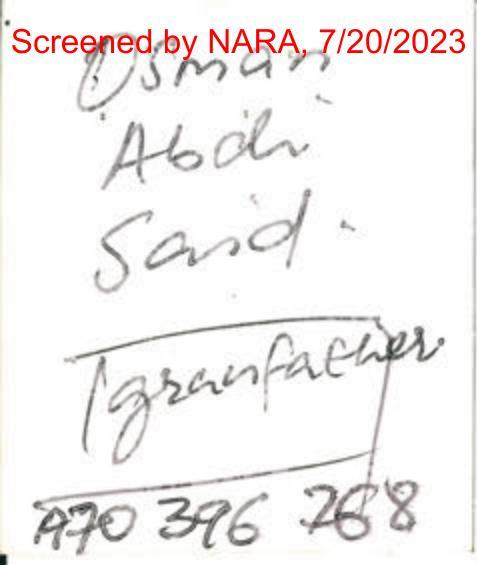 Screened by NARA, 7/20/2023
Osman
Abdi
Said.
granfather
A70 396 768